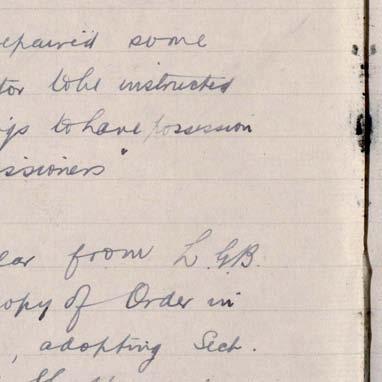 epaired some
tor to be instructed
gs to have possession
ssioners"
ear from L.G.B.
opy of Order in
, adopting Sect.